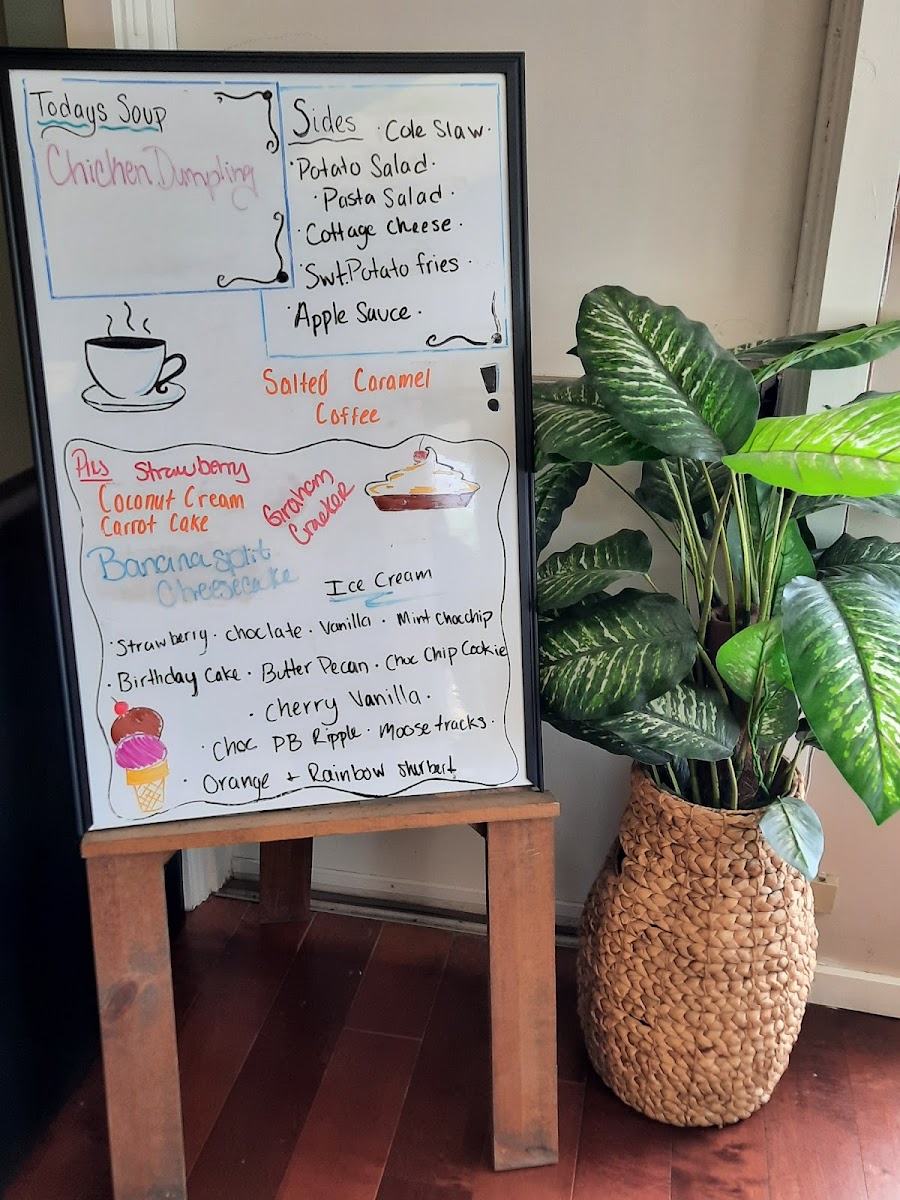 Todays Soup
Chicken Dumpling
Sides · Cole Slaw ·
· Potato Salad ·
· Pasta Salad ·
· Cottage Cheese ·
· Swt. Potato fries ·
· Apple Sauce ·
Salted Caramel
Coffee
!
Pies Strawberry
Coconut Cream
Carrot Cake
Graham
Cracker
Banana split
Cheesecake
Ice Cream
· Strawberry · choclate · Vanilla · Mint Chocchip
· Birthday Cake · Butter Pecan · Choc Chip Cookie
· Cherry Vanilla ·
· Choc PB Ripple · Moose tracks ·
· Orange + Rainbow Sherbert